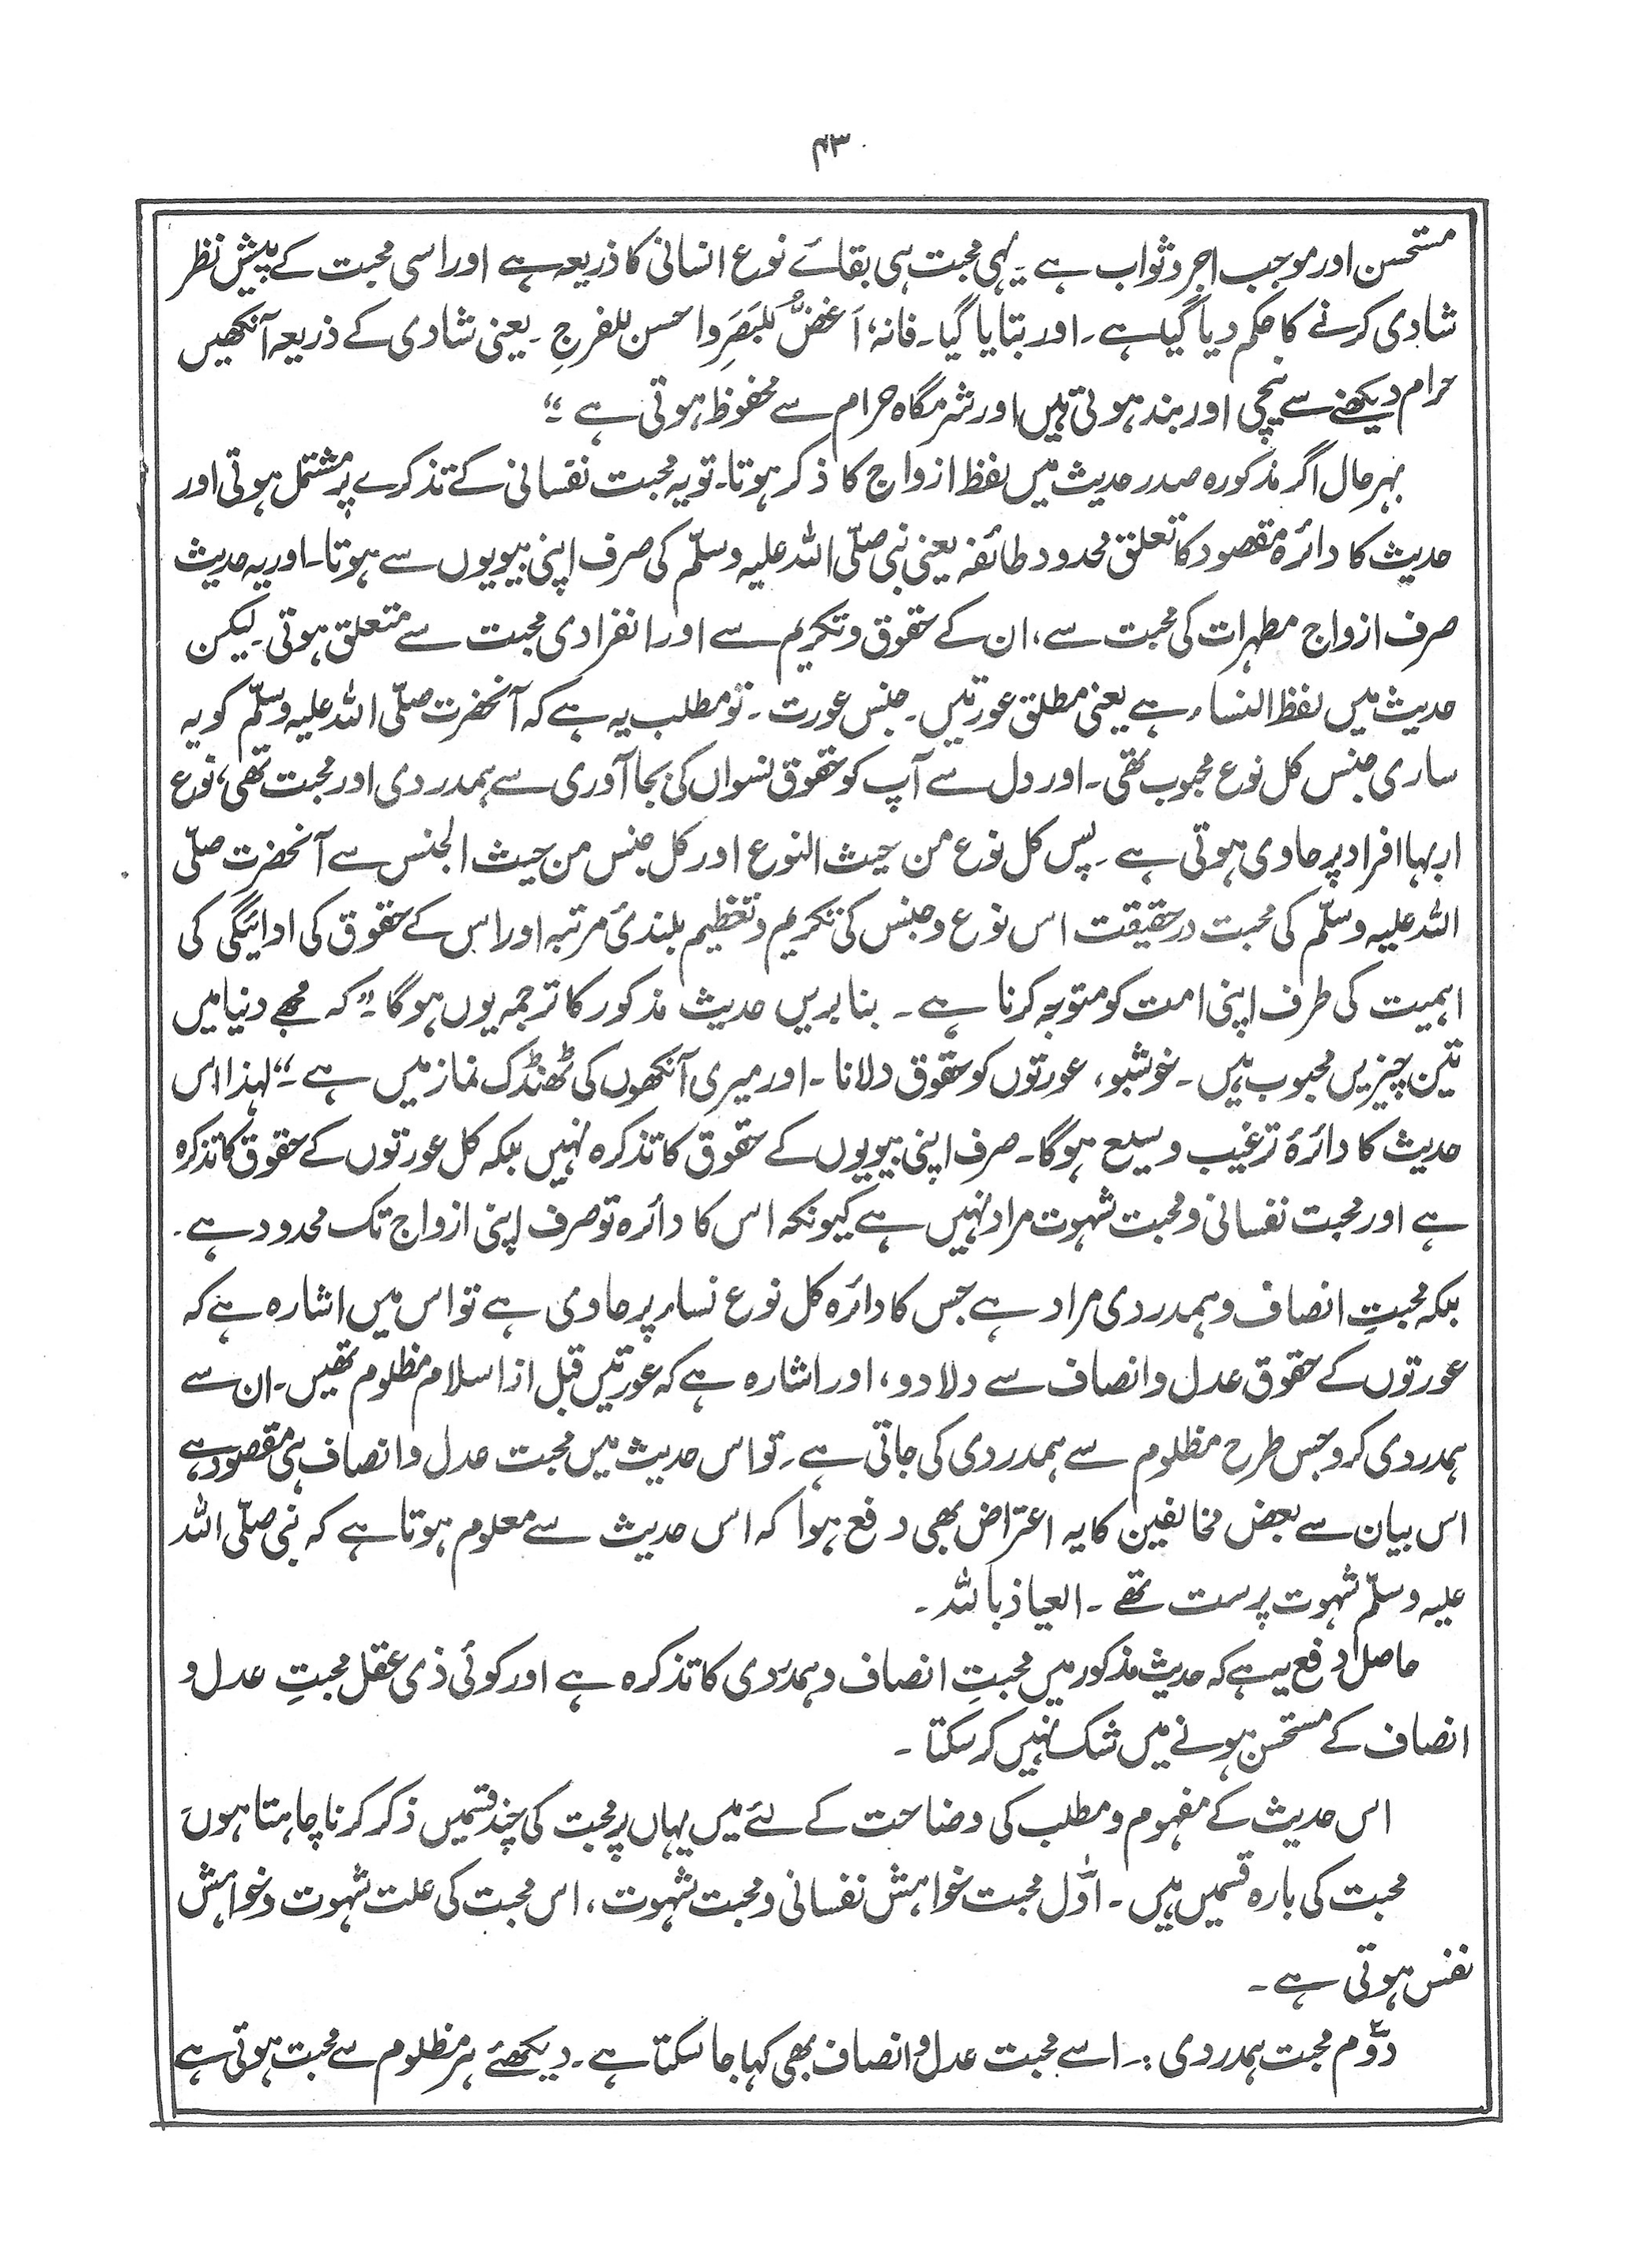 ۴۳
مستحسن اور موجب اجر وثواب ہے ۔ یہی محبت ہی بقائے نوع انسانی کا ذریعہ ہے اور اسی محبت کے پیش نظر
شادی کرنے کا حکم دیا گیا ہے ۔ اور بتایا گیا ۔ فانہٗ اَغضُّ لِلبَصَرِ و احسن للفرجِ ۔ یعنی شادی کے ذریعہ آنکھیں
حرام دیکھنے سے نیچی اور بند ہوتی ہیں اور شرمگاہ حرام سے محفوظ ہوتی ہے ۔“
بہرحال اگر مذکورہ صدر حدیث میں لفظ ازواج کا ذکر ہوتا ۔ تو یہ محبت نفسانی کے تذکرے پر مشتمل ہوتی اور
حدیث کا دائرہ مقصود کا تعلق محدود طائفہ یعنی نبی صلّی اللہ علیہ وسلّم کی صرف اپنی بیویوں سے ہوتا ۔ اور یہ حدیث
صرف ازواج مطہرات کی محبت سے، ان کے حقوق وتکریم سے اور انفرادی محبت سے متعلق ہوتی ۔ لیکن
حدیث میں لفظ النساء ہے یعنی مطلق عورتیں ۔ جنس عورت ۔ تو مطلب یہ ہے کہ آنحضرت صلّی اللہ علیہ وسلّم کو یہ
ساری جنس کل نوع محبوب تھی ۔ اور دل سے آپ کو حقوق نسواں کی بجا آوری سے ہمدردی اور محبت تھی، نوع
اربہا افراد پر حاوی ہوتی ہے ۔ پس کل نوع من حیث النوع اور کل جنس من حیث الجنس سے آنحضرت صلّی
اللہ علیہ وسلّم کی محبت درحقیقت اس نوع وجنس کی تکریم وتعظیم بلندیٔ مرتبہ اور اس کے حقوق کی ادائیگی کی
اہمیت کی طرف اپنی امت کو متوجہ کرنا ہے ۔ بنا بریں حدیث مذکور کا ترجمہ یوں ہوگا ۔” کہ مجھے دنیا میں
تین چیزیں محبوب ہیں ۔ خوشبو، عورتوں کو حقوق دلانا ۔ اور میری آنکھوں کی ٹھنڈک نماز میں ہے ۔“ لہذا اس
حدیث کا دائرۂ ترغیب وسیع ہوگا ۔ صرف اپنی بیویوں کے حقوق کا تذکرہ نہیں بلکہ کل عورتوں کے حقوق کا تذکرہ
ہے اور محبت نفسانی ومحبت شہوت مراد نہیں ہے کیونکہ اس کا دائرہ تو صرف اپنی ازواج تک محدود ہے ۔
بلکہ محبتِ انصاف وہمدردی مراد ہے جس کا دائرہ کل نوع نساء پر حاوی ہے تو اس میں اشارہ ہے کہ
عورتوں کے حقوق عدل وانصاف سے دلا دو، اور اشارہ ہے کہ عورتیں قبل از اسلام مظلوم تھیں ۔ ان سے
ہمدردی کرو جس طرح مظلوم سے ہمدردی کی جاتی ہے ۔ تو اس حدیث میں محبت عدل وانصاف ہی مقصود ہے
اس بیان سے بعض مخالفین کا یہ اعتراض بھی دفع ہوا کہ اس حدیث سے معلوم ہوتا ہے کہ نبی صلّی اللہ
علیہ وسلّم شہوت پرست تھے ۔ العیاذ باللہ ۔
حاصل دفع یہ ہے کہ حدیث مذکور میں محبتِ انصاف وہمدردی کا تذکرہ ہے اور کوئی ذی عقل محبتِ عدل و
انصاف کے مستحسن ہونے میں شک نہیں کر سکتا ۔
اس حدیث کے مفہوم ومطلب کی وضاحت کے لئے میں یہاں پر محبت کی چند قسمیں ذکر کرنا چاہتا ہوں
محبت کی بارہ قسمیں ہیں ۔ اوّل محبت خواہش نفسانی ومحبت شہوت، اس محبت کی علت شہوت وخواہش
نفس ہوتی ہے ۔
دوّم محبت ہمدردی :۔ اسے محبت عدل وانصاف بھی کہا جا سکتا ہے ۔ دیکھئے ہر مظلوم سے محبت ہوتی ہے